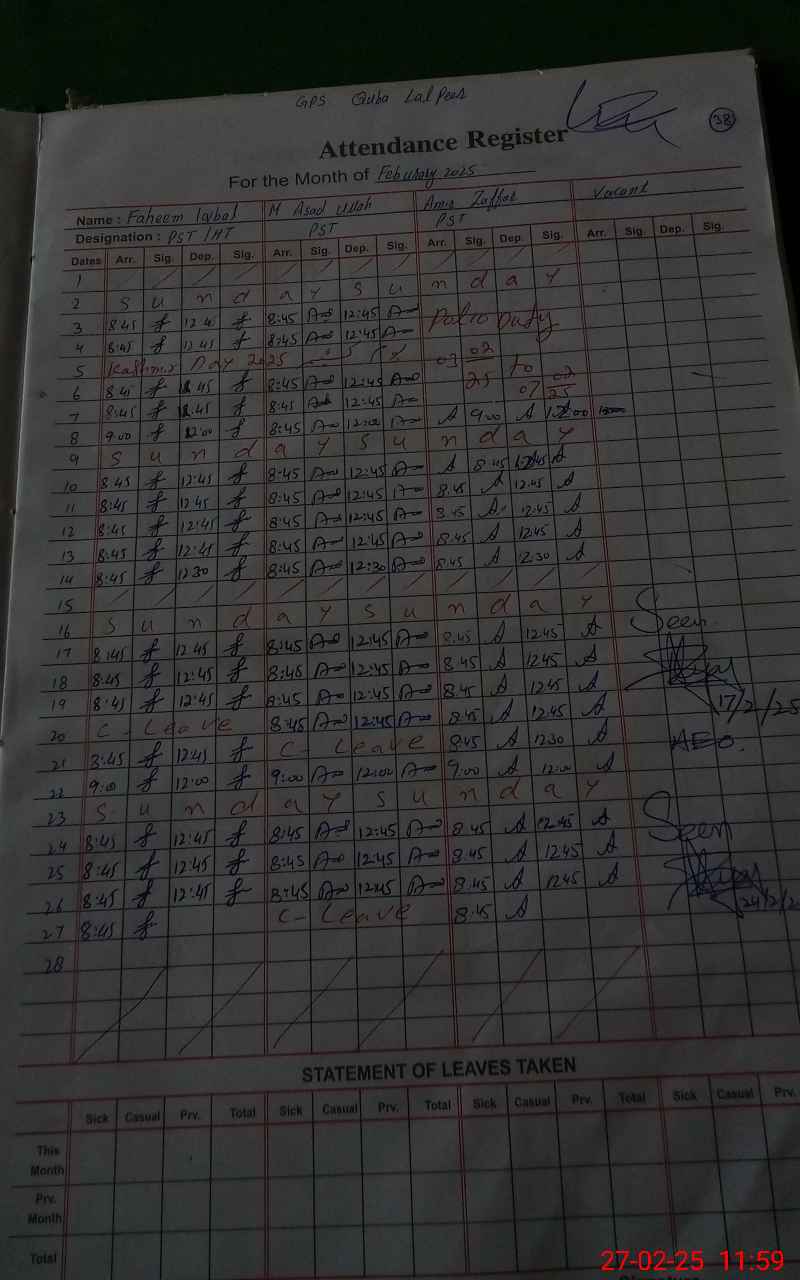 GPS Quba Lal Peer
38
Attendance Register
For the Month of Febuary 2025
Name : Faheem Iqbal M Asad Ullah Amir Zaffar Vacant
Designation : PST / HT PST PST
Dates Arr. Sig. Dep. Sig. Arr. Sig. Dep. Sig. Arr. Sig. Dep. Sig. Arr. Sig. Dep. Sig.
1
2 S u n d a y S u n d a y
3 8:45 12:45 8:45 12:45 Polio Duty
4 8:45 12:45 8:45 12:45
5 Kashmir Day 2025 03 02 25 to
6 8:45 12:45 8:45 12:45 07 02 25
7 8:45 12:45 8:45 12:45
8 9:00 12:00 8:45 12:00 A 9:00 A
9 S u n d a y S u n d a y
10 8:45 12:45 8:45 12:45 A 8:45 12:45 A
11 8:45 12:45 8:45 12:45 8:45 A 12:45 A
12 8:45 12:45 8:45 12:45 8:45 A 12:45 A
13 8:45 12:45 8:45 12:45 8:45 A 12:45 A
14 8:45 12:30 8:45 12:30 8:45 A 12:30 A
15
16 S u n d a y S u n d a y Seen
17 8:45 12:45 8:45 12:45 8:45 A 12:45 A
18 8:45 12:45 8:45 12:45 8:45 A 12:45 A
19 8:45 12:45 8:45 12:45 8:45 A 12:45 A 17/2/25
20 C- Leave 8:45 12:45 8:45 A 12:45 A
21 8:45 12:45 C- Leave 8:45 A 12:30 A AEO.
22 9:00 12:00 9:00 12:00 9:00 A 12:00 A
23 S u n d a y S u n d a y
24 8:45 12:45 8:45 12:45 8:45 A 12:45 A Seen
25 8:45 12:45 8:45 12:45 8:45 A 12:45 A
26 8:45 12:45 8:45 12:45 8:45 A 12:45 A 24/2/2
27 8:45 C- Leave 8:45 A
28
STATEMENT OF LEAVES TAKEN
Sick Casual Prv. Total Sick Casual Prv. Total Sick Casual Prv. Total Sick Casual Prv.
This
Month
Prv.
Month
Total
27-02-25 11:59